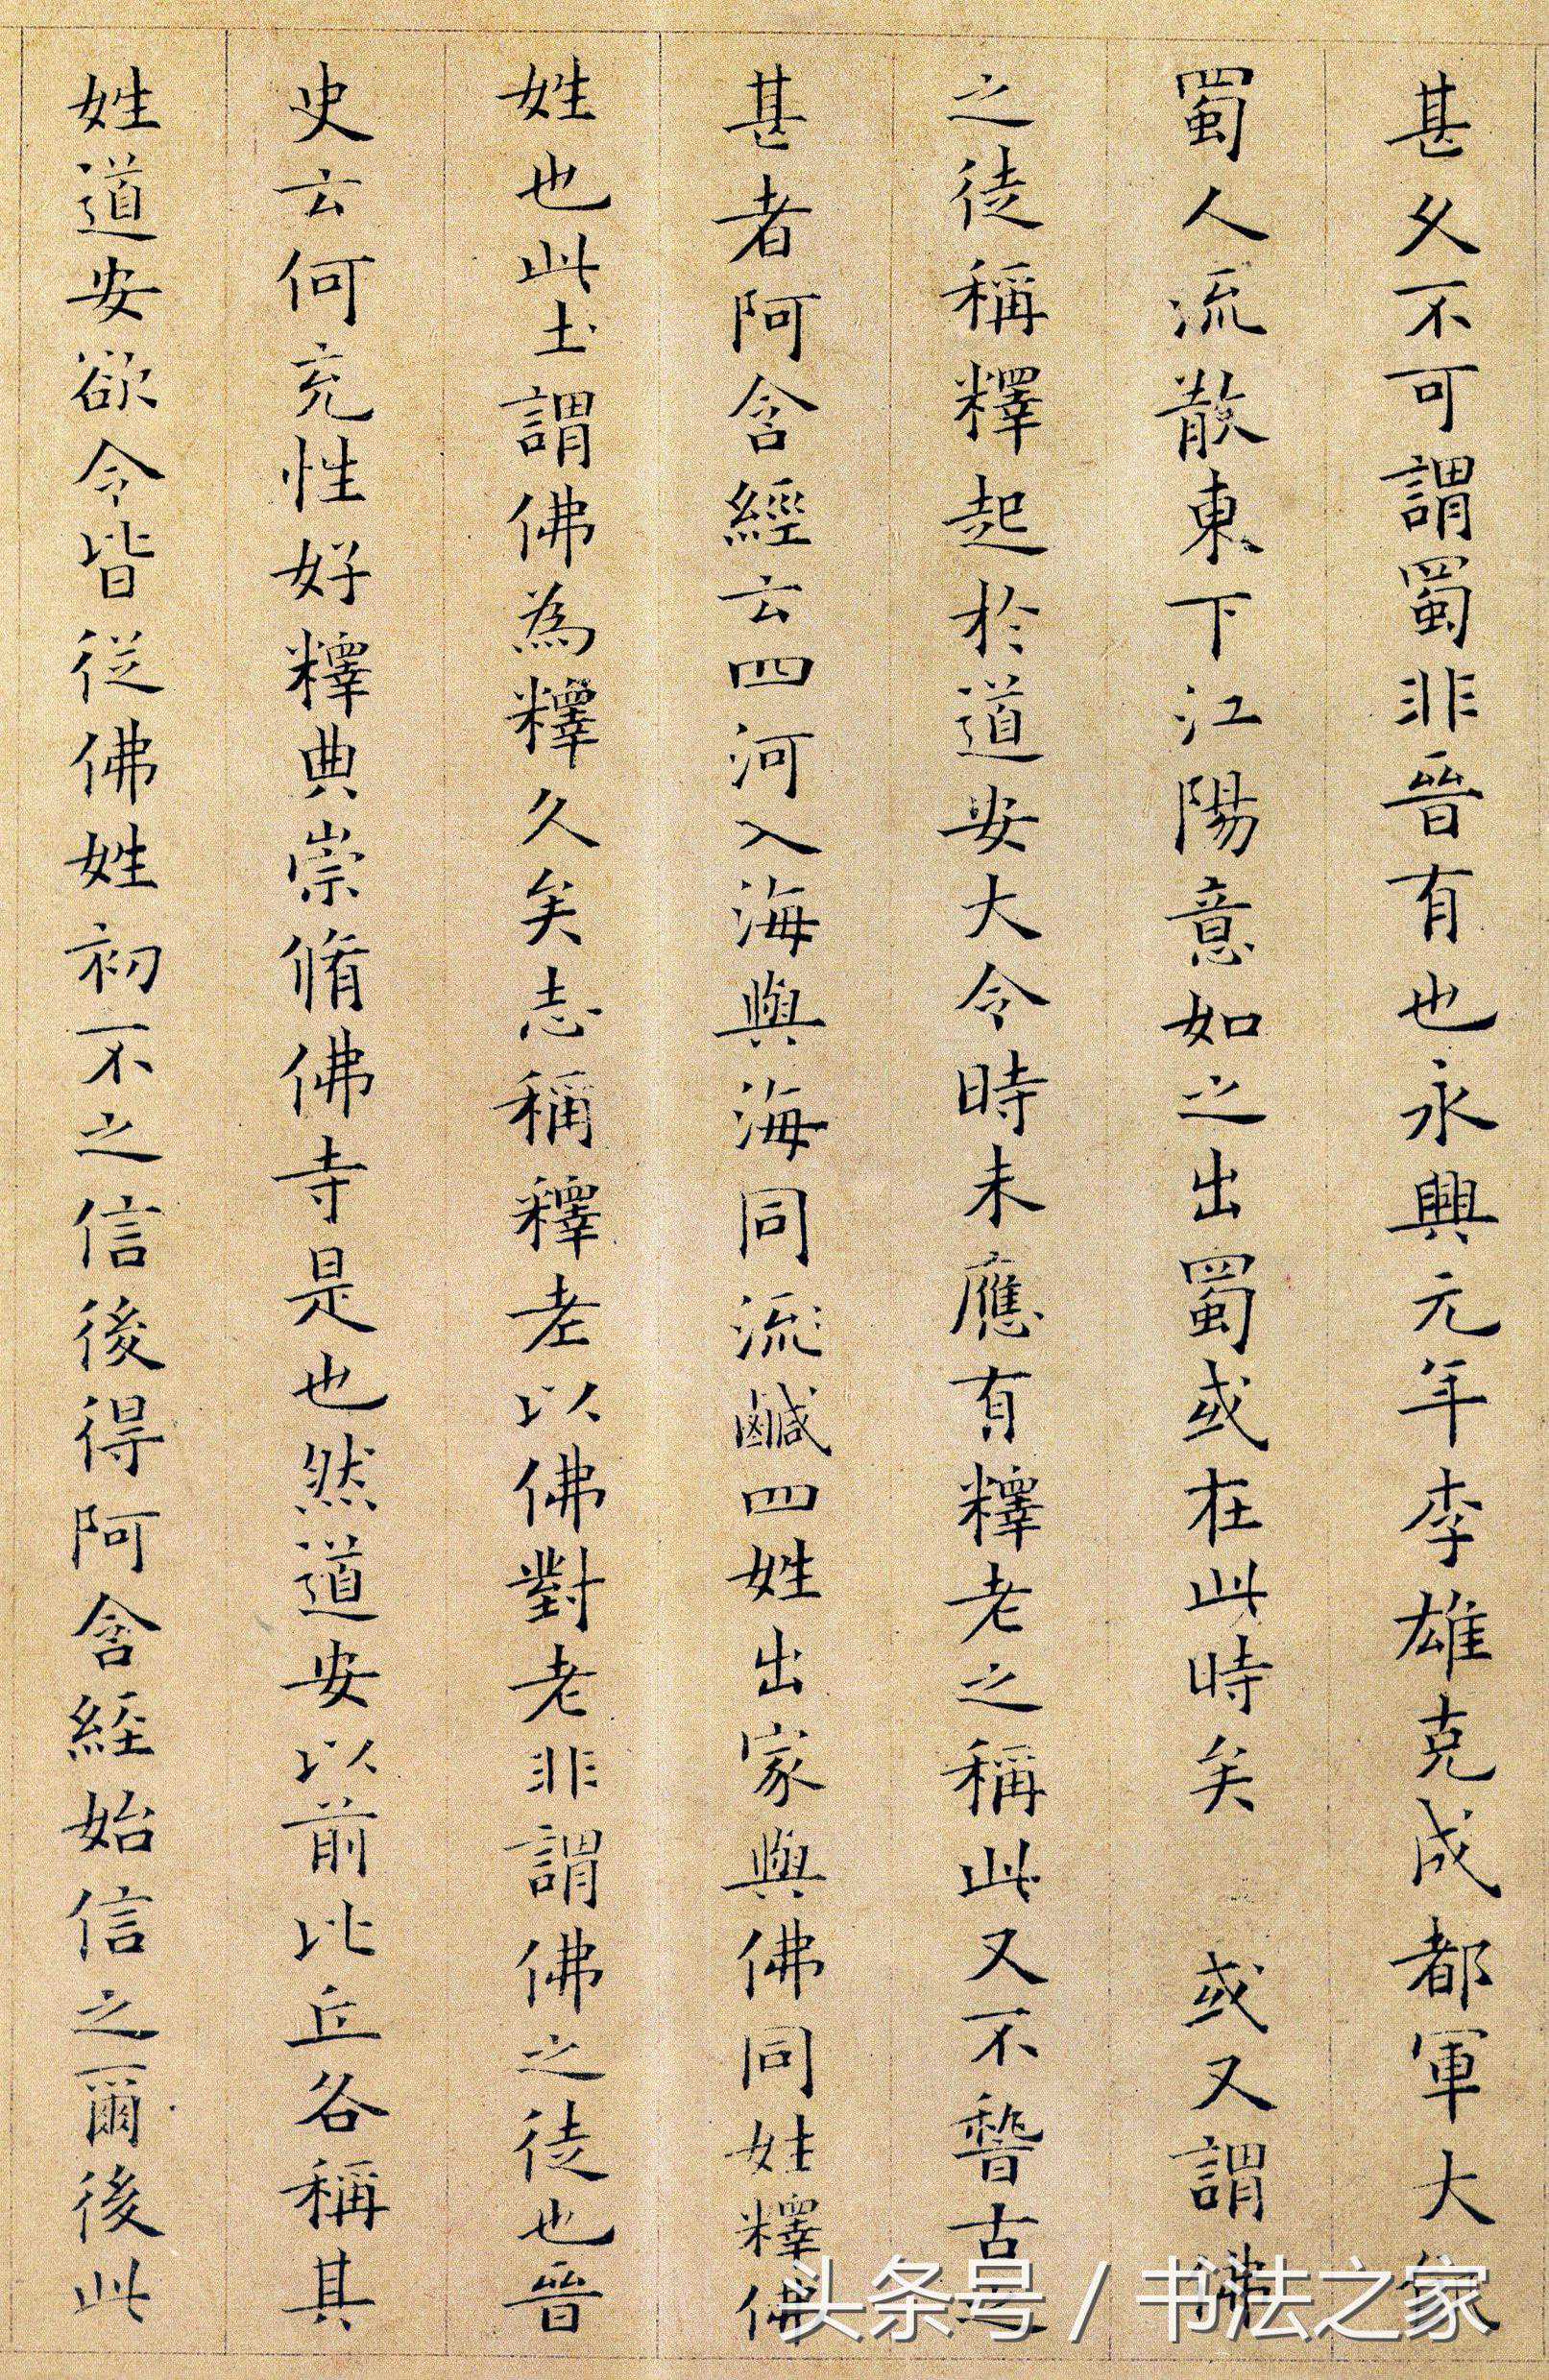 甚久不可謂蜀非晉有也永興元年李雄克成都軍大
蜀人流散東下江陽意如之出蜀或在此時矣 或又謂佛
之徒稱釋起於道安大令時未應有釋老之稱此又不稽古之
甚者阿含經云四河入海與海同流鹹四姓出家與佛同姓釋佛
姓也此土謂佛為釋久矣志稱釋老以佛對老非謂佛之徒也晉
史云何充性好釋典崇脩佛寺是也然道安以前比丘各稱其
姓道安欲令皆從佛姓初不之信後得阿含經始信之爾後此
头条号/书法之家